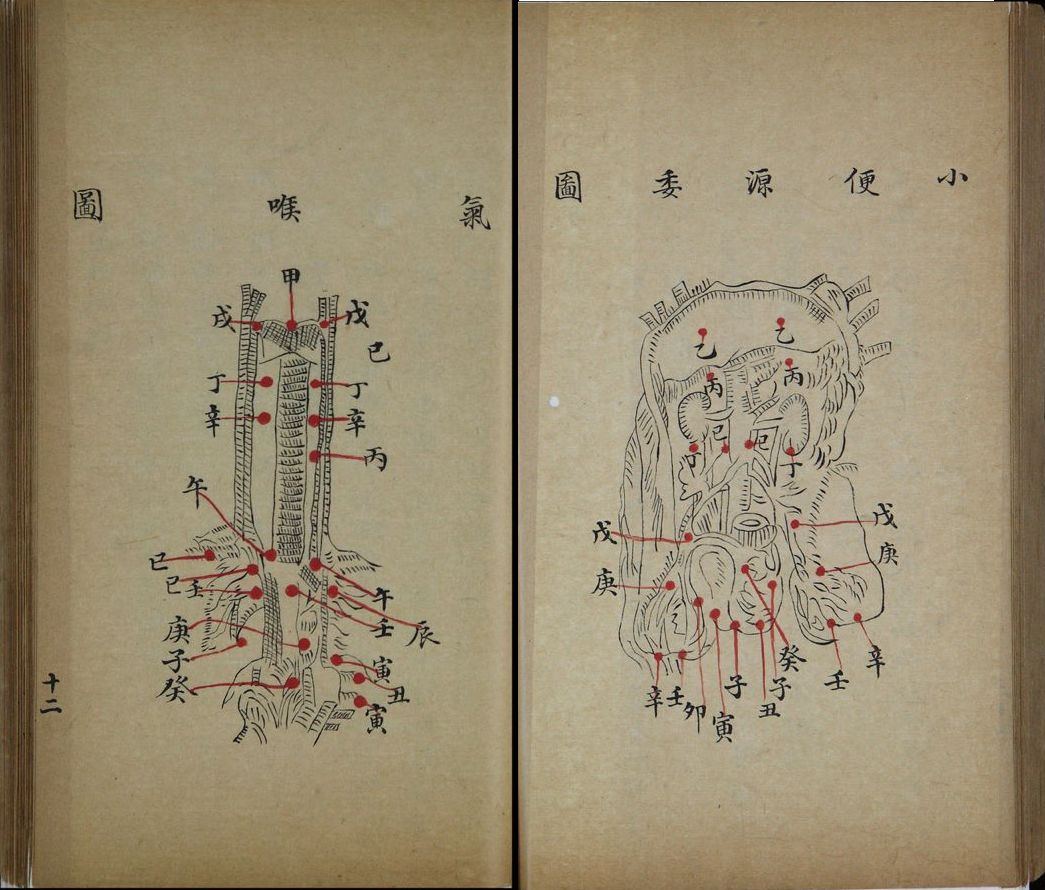 小便源委圖
乙
乙
丙
丙
巳
巳
丁
丁
戊
戊
庚
庚
癸
辛
壬
卯
寅
子
丑
子
壬
辛
氣喉圖
甲
戌
戊
巳
丁
丁
辛
辛
丙
午
巳
巳
壬
午
壬
辰
庚
子
癸
寅
丑
寅
十二